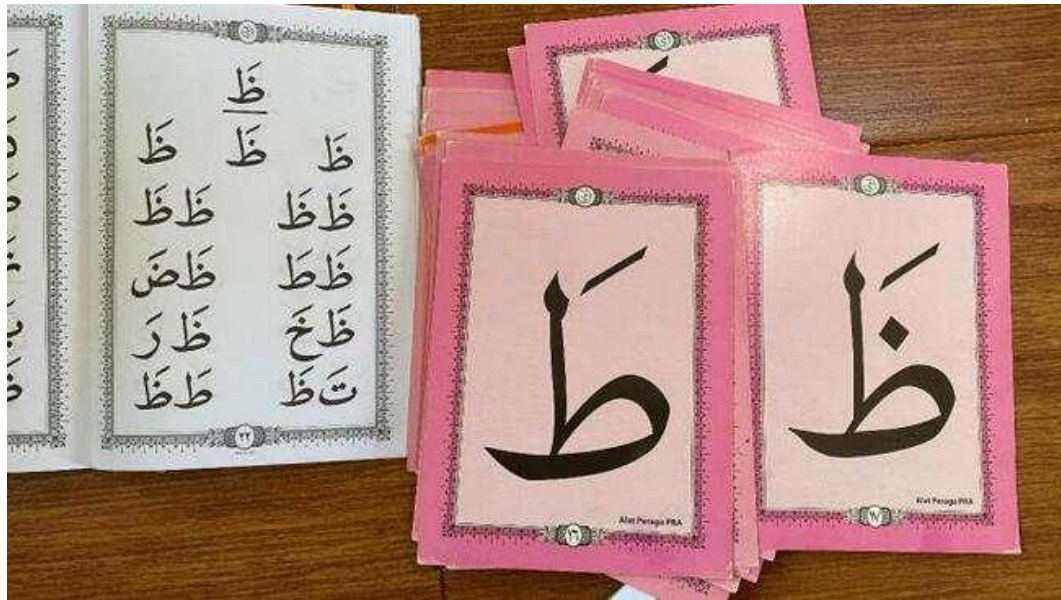 ظَ
ظَ ظَ ظَ
ظَظَ ظَظَ
ظَطَ ظَضَ
ظَخَ ظَ رَ
تَظَ طَظَ
٢٢
طَ
Alat Peraga PRA
ظَ
Alat Peraga PRA